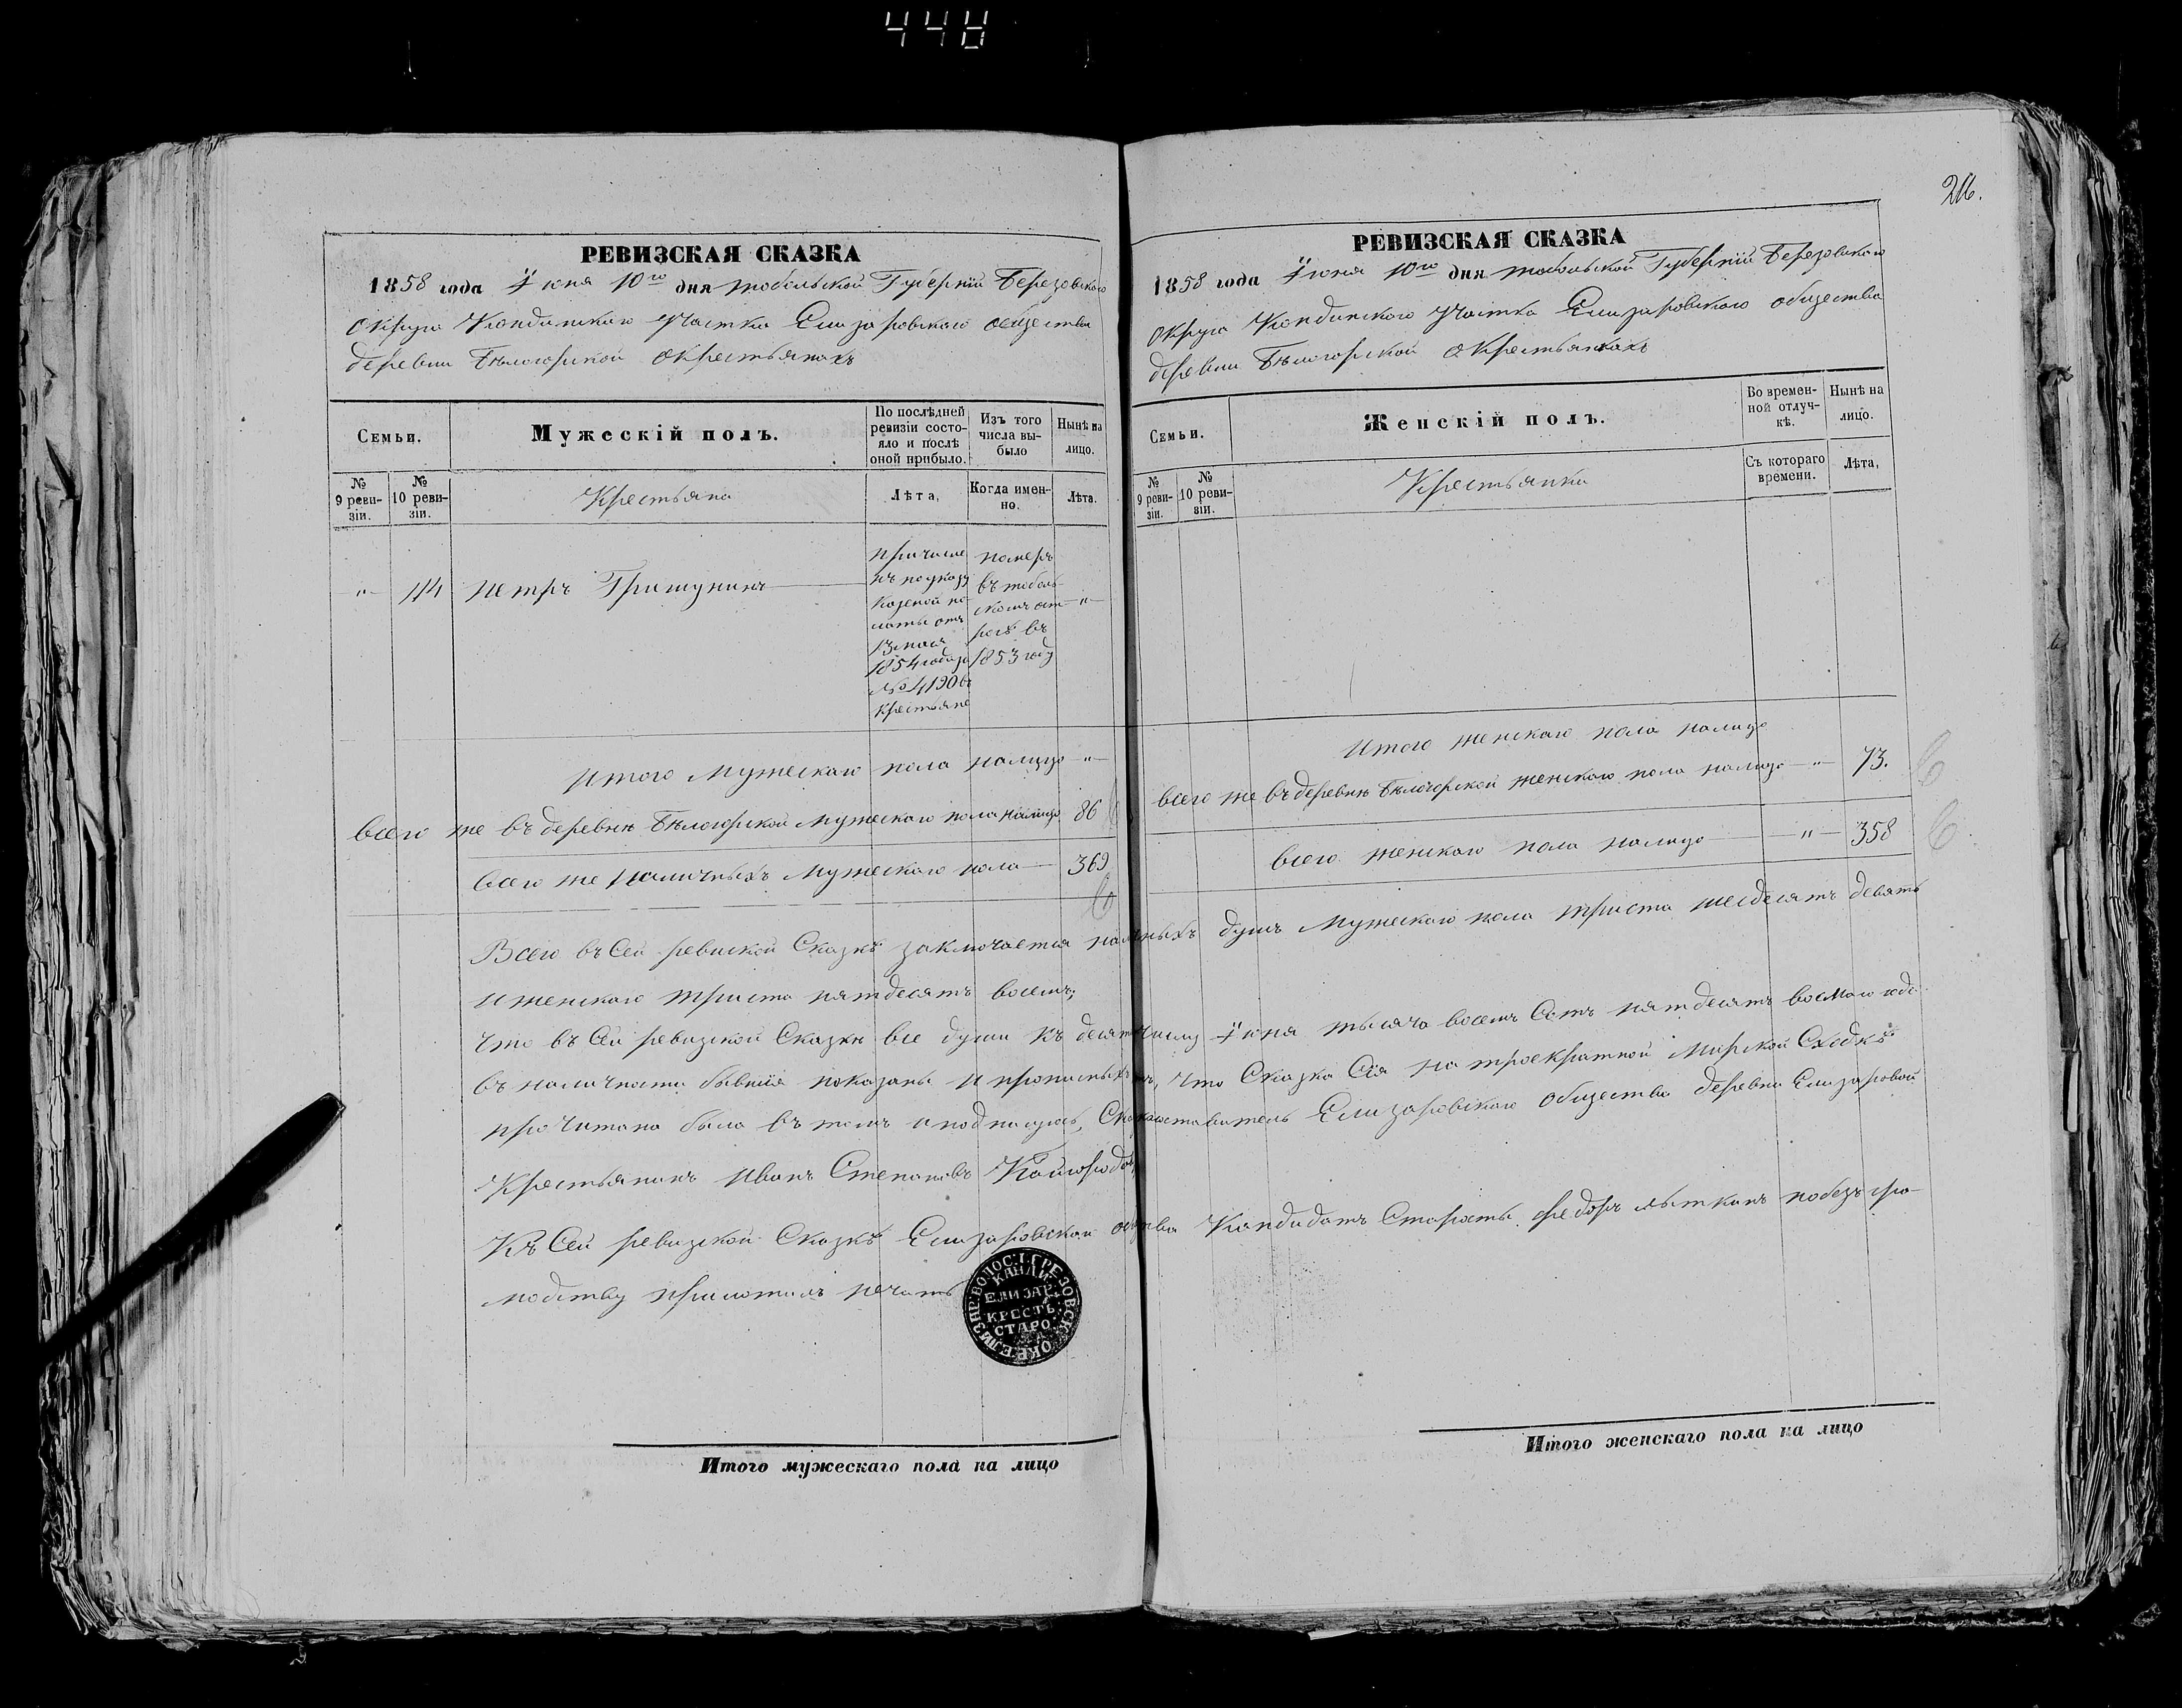 448
216.
РЕВИЗСКАЯ СКАЗКА
1858 года Iюня 10го дня тобольской Губернiи Березовского
округа Кондинского Участка Елизаровского общества
деревни Бѣлогорской окрестьянахъ
Семьи.
Мужескiй полъ.
По послѣдней ревизiи состояло и послѣ оной прибыло.
Изъ того числа выбыло
Нынѣ на лицо.
№ 9 ревизiи.
№ 10 ревизiи.
Крестьяна
Лѣта,
Когда именно.
Лѣта.
„ 44 петръ Гришунинъ
причисле
нъ поуказу
Казеной па
латы отъ
13 мая
1854 года за
№ 4190 въ
крестьяне
померъ
въ тоболь
скомъ ост
рогѣ въ
1853 году
„
итого Мужескаго пола налицо „
всего же въ деревне Бѣлогорской Мужескаго пола налицо 86
всего же наличныхъ Мужескаго пола 369
РЕВИЗСКАЯ СКАЗКА
1858 года Iюня 10го дня тобольской Губернiи Березовского
округа Кондинского Участка Елизаровского общества
деревни Бѣлогорской окрестьянахъ
Семьи.
Женскiй полъ.
Во временной отлучкѣ.
Нынѣ на лицо.
№ 9 ревизiи.
№ 10 ревизiи.
Крестьянки
Съ котораго времени.
Лѣта,
итого женскаго пола налицо
всего же въ деревне Бѣлогорской женскаго пола налицо „ 73.
всего женскаго пола налицо „ 358
Всего въ Сей ревиской Сказкѣ заключается душъ Мужескаго пола триста шесдесятъ девять
и женскаго триста пятдесятъ восемъ;
что въ Сей ревизской Сказке все души къ десятому Iюня тысяча восемъ Сотъ пятдесятъ восмаго года
въ наличности бывшiя показаны и что Сказка Сiя на троекратной Мирской Сходкѣ
прочитана была въ томъ и подписуюсь, Сказкоставитель Елизаровскаго общества деревни Елизаровой
Крестьянинъ Иванъ Степановъ Кайгородовъ
Къ Сей ревизской Сказкѣ Елизаровскаи Кандидатъ Старосты Федоръ побезгра-
мотству приложилъ печать
КАНДИ.
ЕЛИЗАР.
КРЕСТЬ.
СТАРО.
Итого мужескаго пола на лицо
Итого женскаго пола на лицо